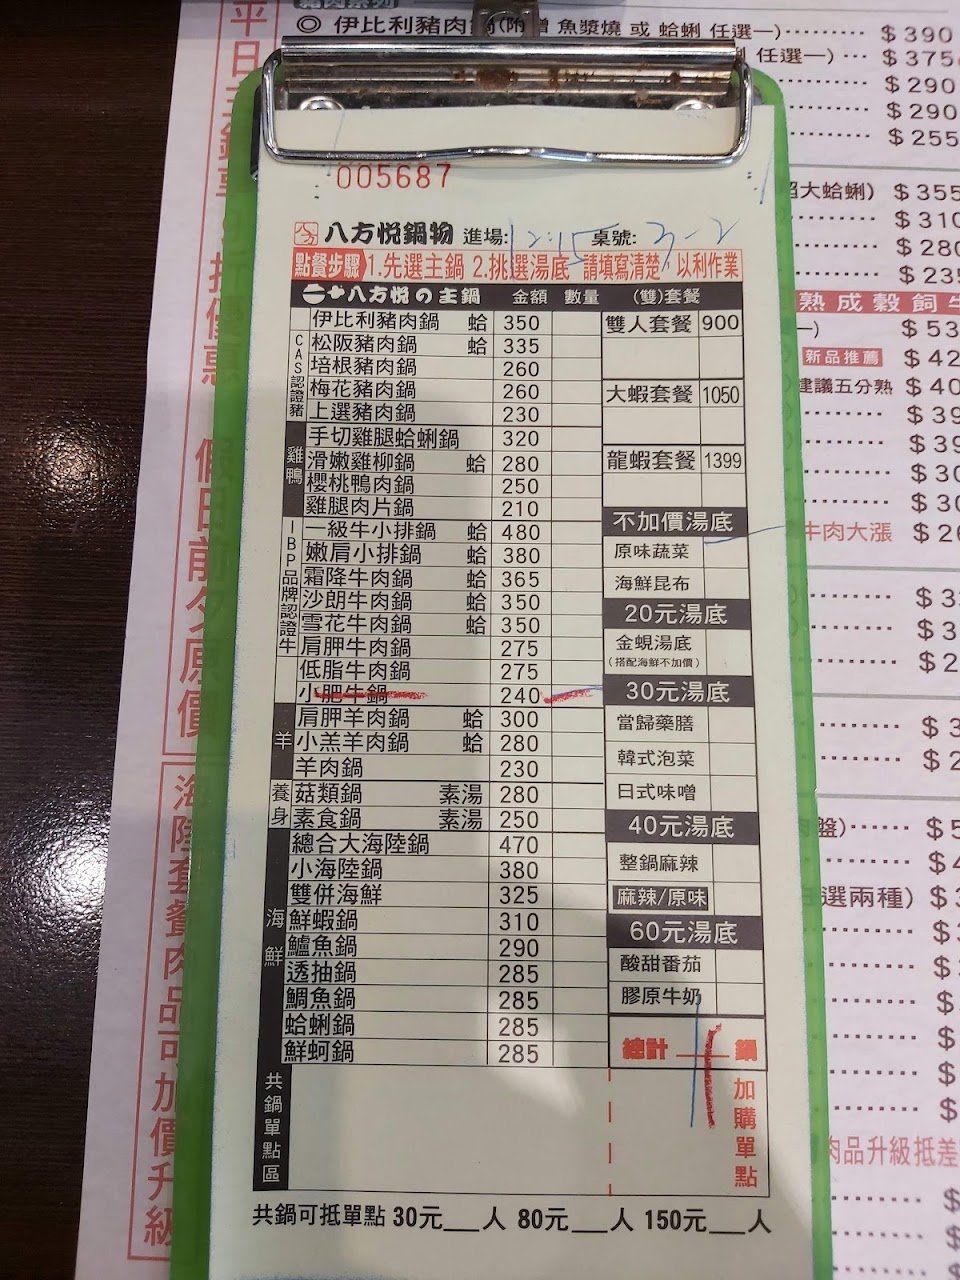 ◎ 伊比利豬肉鍋(附贈 魚漿燒 或 蛤蜊 任選一) $390
任選一) $375
$290
$290
$255
招大蛤蜊) $355
$310
$280
熟成穀飼牛
新品推薦
建議五分熟
牛肉大漲
選兩種)
肉品升級抵差
假日前夕原價
海陸套餐肉品可加價升級
005687
八方 八方悅鍋物 進場: 12:15 桌號: 3-2
點餐步驟 1.先選主鍋 2.挑選湯底 請填寫清楚，以利作業
八方悅の主鍋 金額 數量 (雙)套餐
CAS認證豬
伊比利豬肉鍋 蛤 350
松阪豬肉鍋 蛤 335
培根豬肉鍋 260
梅花豬肉鍋 260
上選豬肉鍋 230
雞鴨
手切雞腿蛤蜊鍋 320
滑嫩雞柳鍋 蛤 280
櫻桃鴨肉鍋 250
雞腿肉片鍋 210
IBP品牌認證牛
一級牛小排鍋 蛤 480
嫩肩小排鍋 蛤 380
霜降牛肉鍋 蛤 365
沙朗牛肉鍋 蛤 350
雪花牛肉鍋 蛤 350
肩胛牛肉鍋 275
低脂牛肉鍋 275
小肥牛鍋 240
羊
肩胛羊肉鍋 蛤 300
小羔羊肉鍋 蛤 280
羊肉鍋 230
養身
菇類鍋 素湯 280
素食鍋 素湯 250
海鮮
總合大海陸鍋 470
小海陸鍋 380
雙併海鮮 325
鮮蝦鍋 310
鱸魚鍋 290
透抽鍋 285
鯛魚鍋 285
蛤蜊鍋 285
鮮蚵鍋 285
雙人套餐 900
大蝦套餐 1050
龍蝦套餐 1399
不加價湯底
原味蔬菜
海鮮昆布
20元湯底
金蜆湯底
(搭配海鮮不加價)
30元湯底
當歸藥膳
韓式泡菜
日式味噌
40元湯底
整鍋麻辣
麻辣/原味
60元湯底
酸甜番茄
膠原牛奶
總計 鍋
共鍋單點區
加購單點
共鍋可抵單點 30元___人 80元___人 150元___人